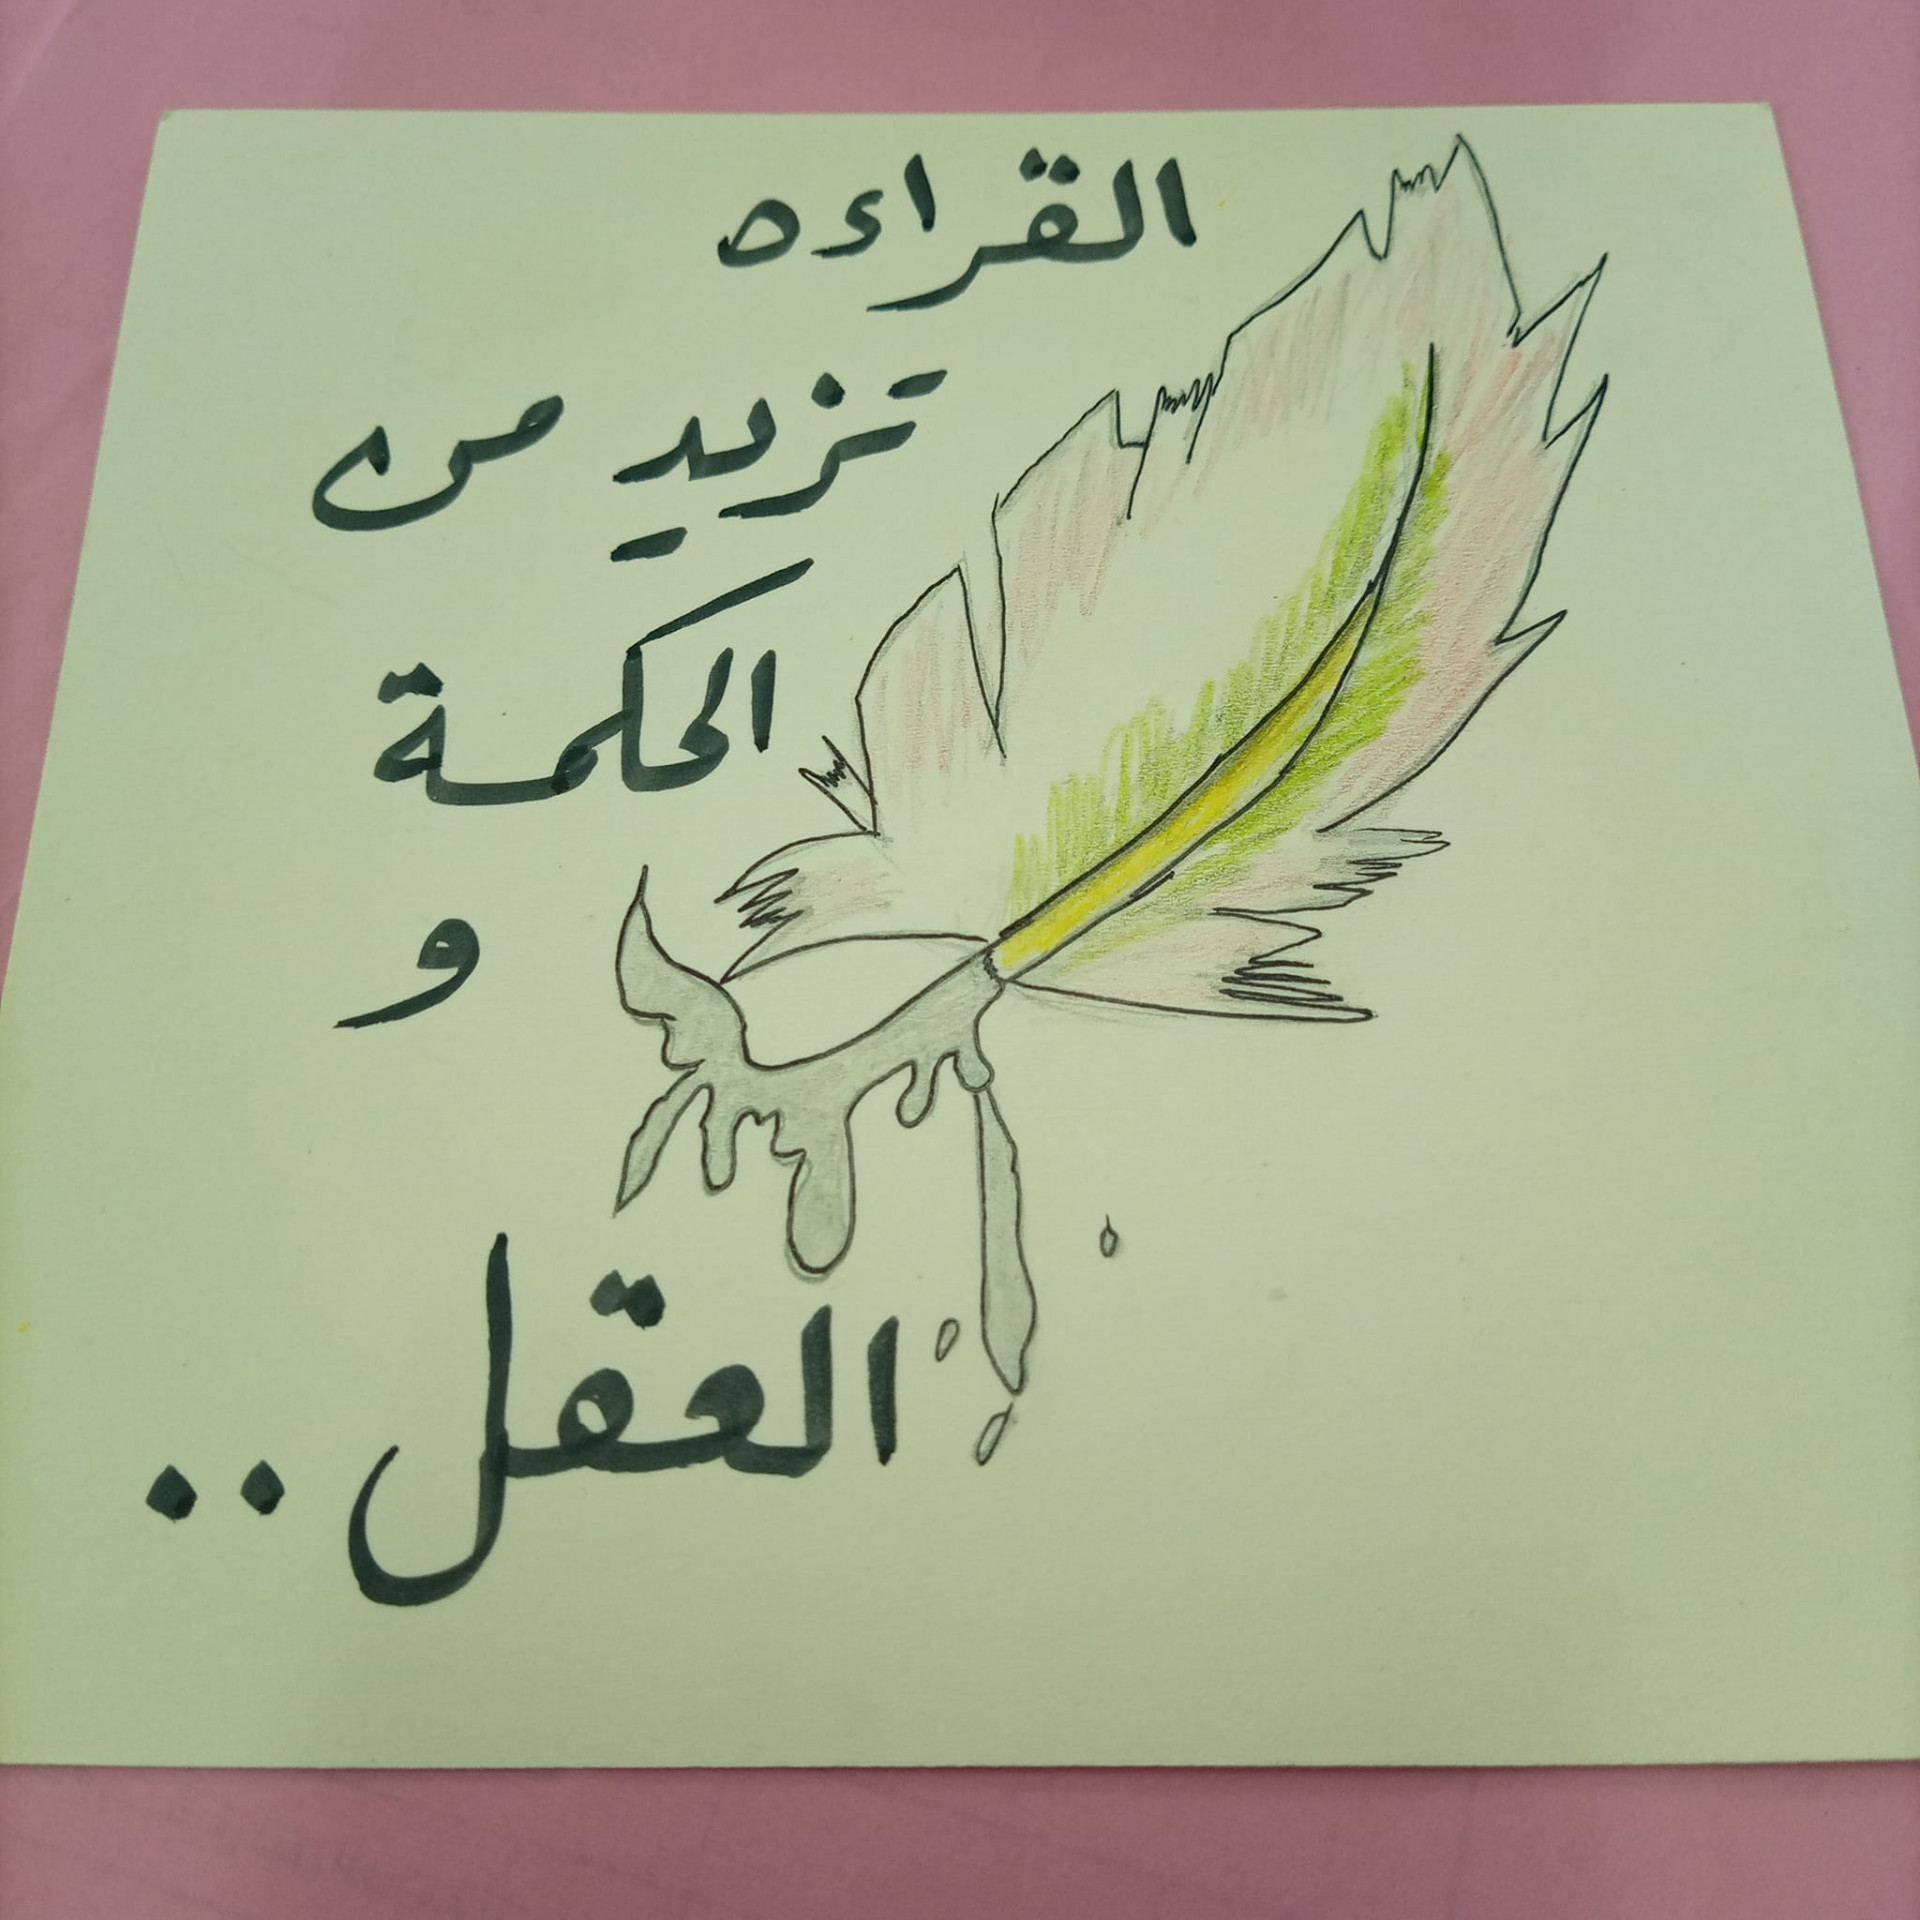 القراءه
تزيد من
الحكمة
و
العقل..